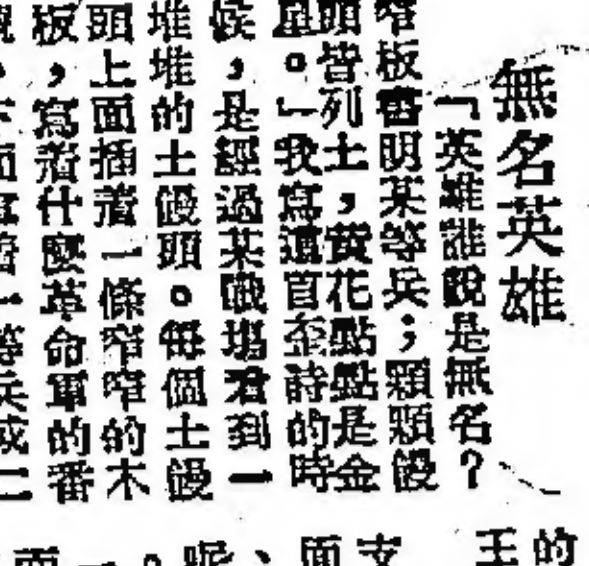 無名英雄
「英雄誰說是無名?
窄板書明某等兵;顆顆饅
頭皆列士,黃花點點是金
星。」我寫這首歪詩的時
候,是經過某戰場看到一
堆堆的土饅頭。每個土饅
頭上面插着一條窄窄的木
板,寫着什麼革命軍的番
號,下面寫着一等兵或二
的
王
支
面
、
呢
。
一